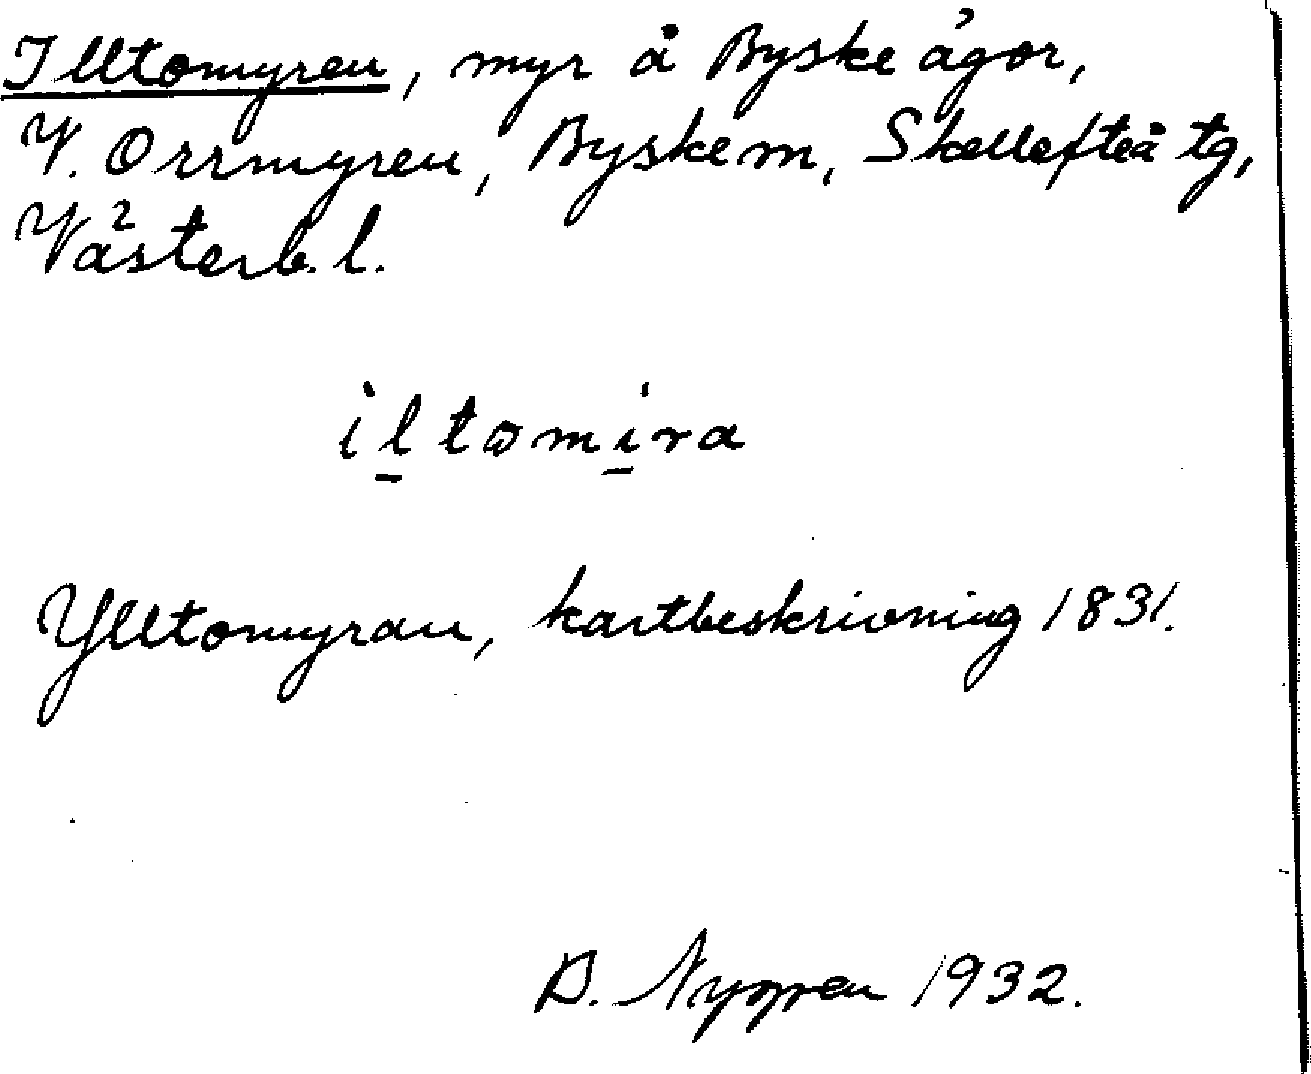 Illtomyren, myr å Byske ägor,
V. Orrmyren, Byske m, Skellefteå tg,
Västerb. l.
iltomira
Ylltomyran, kartbeskrivning 1831.
D. Nygren 1932.